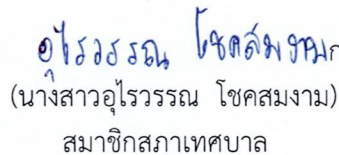 อุไรวรรณ โชคสมงาม
(นางสาวอุไรวรรณ โชคสมงาม)
สมาชิกสภาเทศบาล